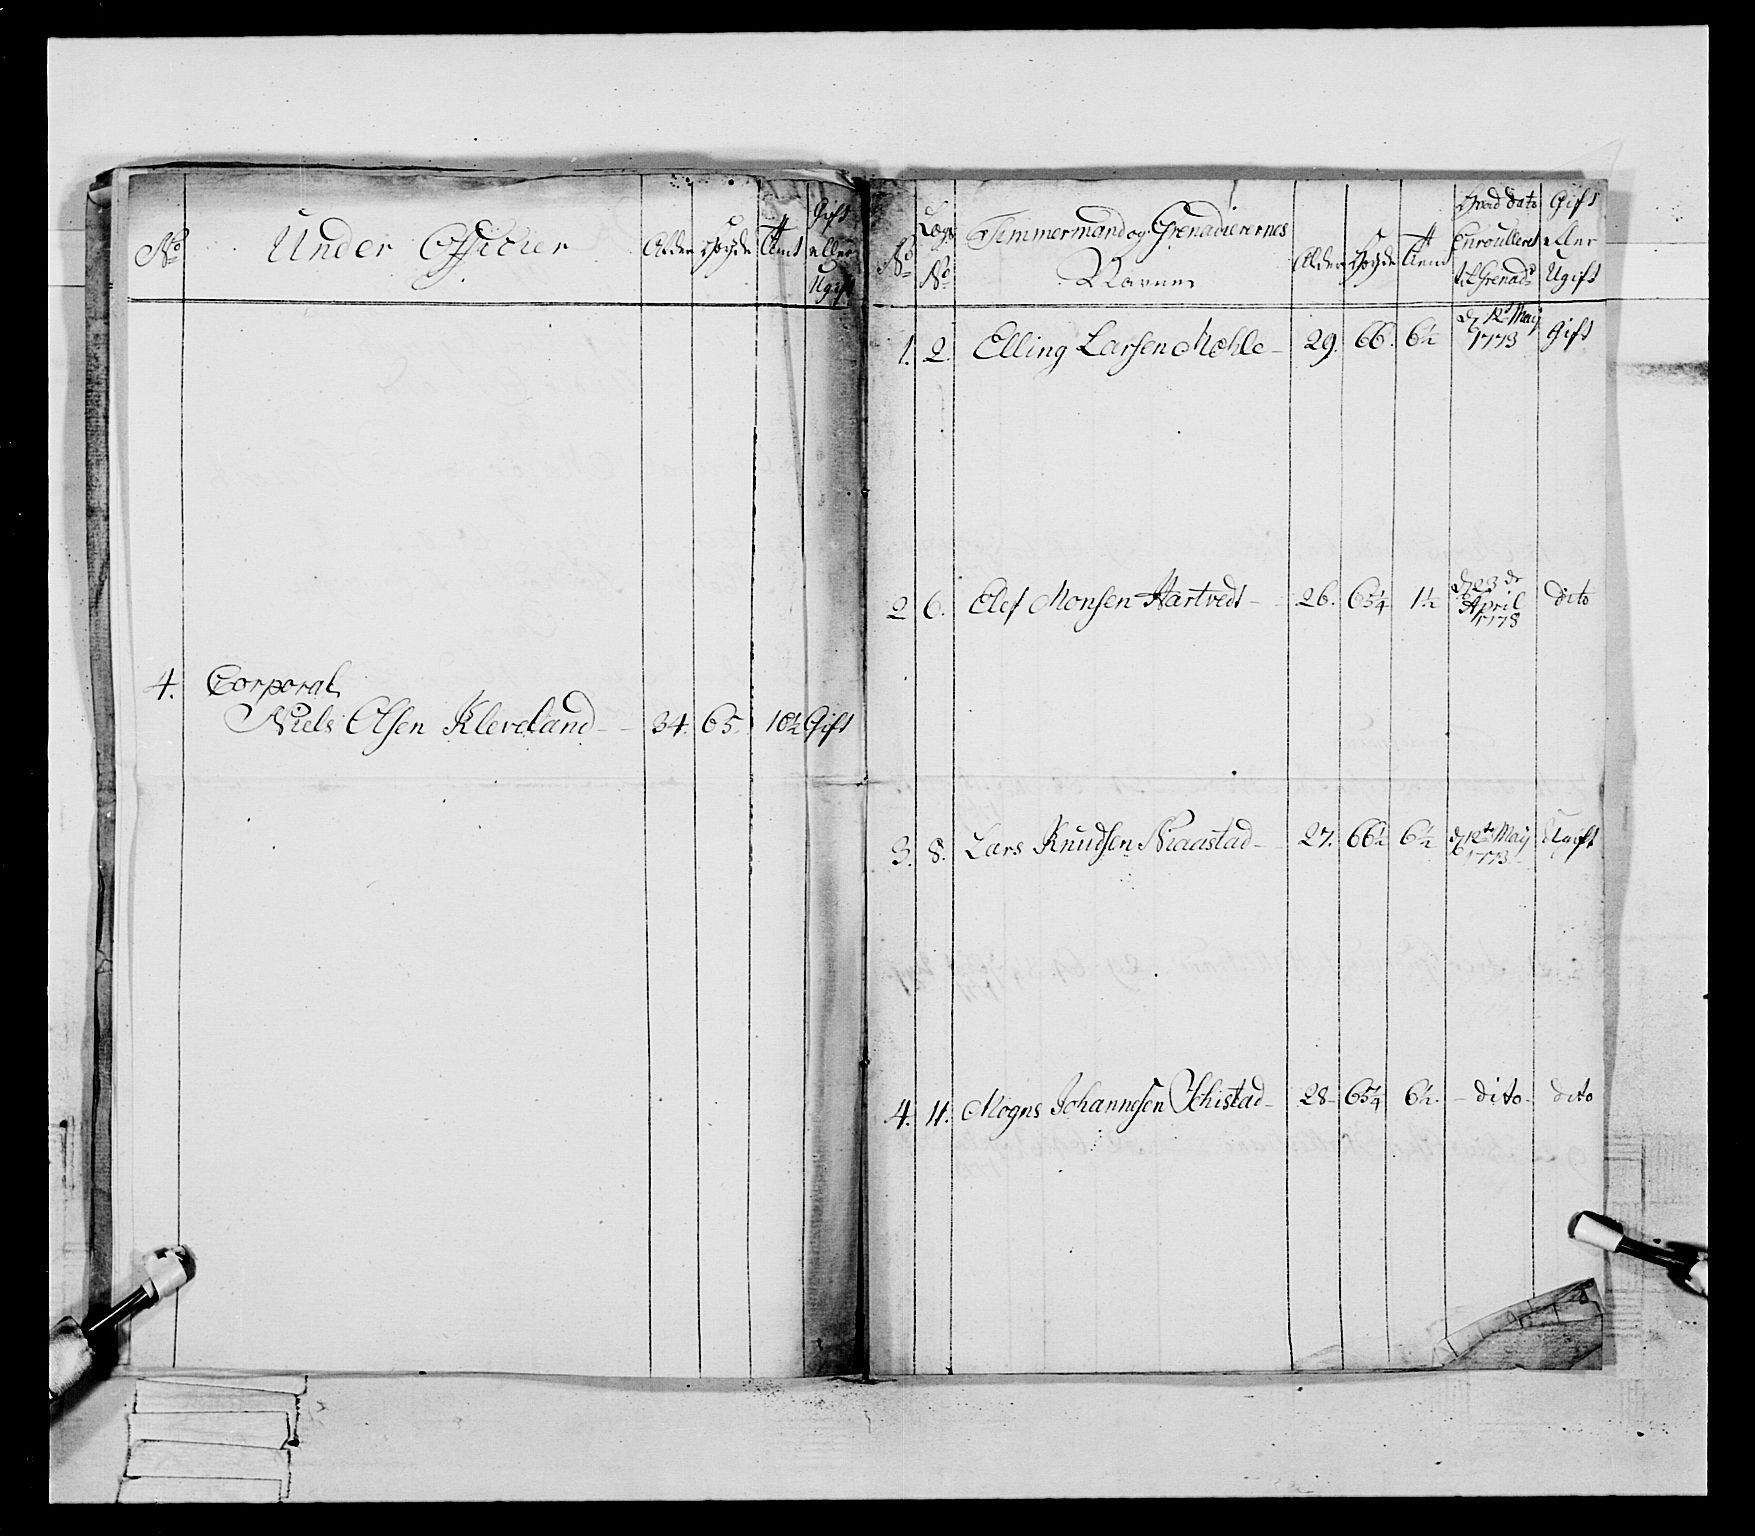 No
Under Officier
Alder
Høyde
Aar
tient
Gift
eller
Ugift
4. Corporal
Niels Olsen Kleveland 34. 65. 10½ Gift
No
Logs
No
Timmermand og Grenadierernes
Navne
Alder
Høyde
Aar
tient
Hvad dato
Enroulleret
til Grenadr
Gift
eller
Ugift
1. 2. Elling Larsen Mohle 29. 66. 6½ d 12t May 1773 Gift
2 6. Olef Monsen Hartvedt 26. 65¼ 1½ d 23de April 1778 dito
3. 8. Lars Knudsen Niaastad 27. 66½ 6½ d 12te May 1773 Ugift
4. 11. Mogns Johannesen Schistad 28 65¼ 6½ dito dito